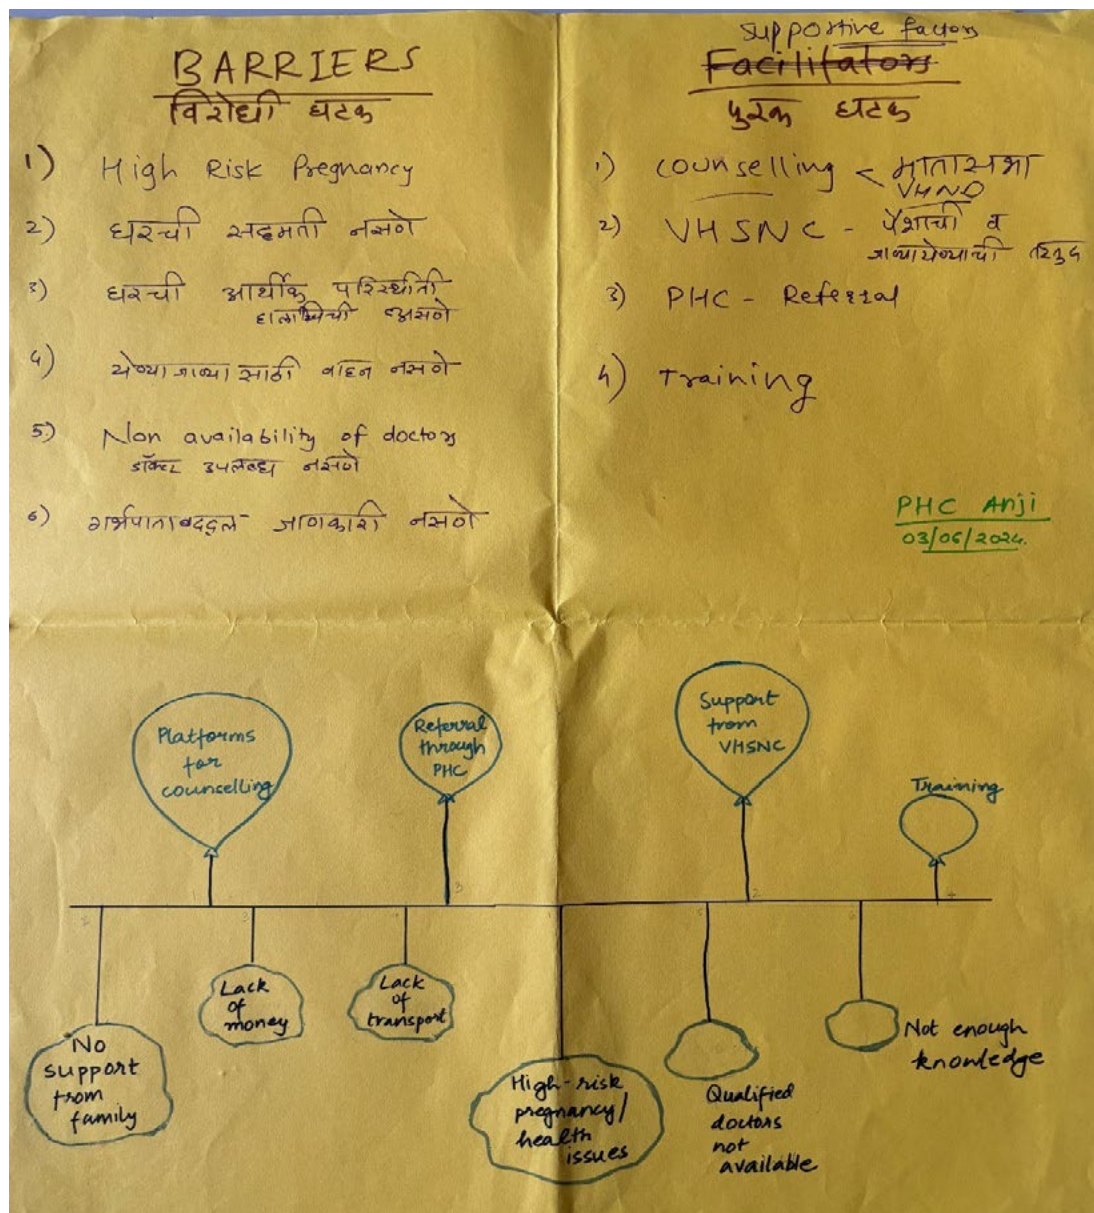 BARRIERS
विरोधी घटक
1) High Risk Pregnancy
2) घरची सहमती नसणे
3) घरची आर्थीक परिस्थीती
हलाखिची असणे
4) येण्या जाण्या साठी वाहन नसणे
5) Non availability of doctors
डॉक्टर उपलब्ध नसणे
6) गर्भपाताबद्दल जाणकारी नसणे
Supportive factors
Facilitators
पुरक घटक
1) Counselling < मातासभा
VHND
2) VHSNC - पैशाची व
जाण्यायेण्याची
3) PHC - Referral
4) Training
PHC Anji
03/06/2024.
Platforms
for
counselling
Referral
through
PHC
Support
from
VHSNC
Training
No
support
from
family
Lack
of
money
Lack
of
transport
High-risk
pregnancy/
health
issues
Qualified
doctors
not
available
Not enough
knowledge